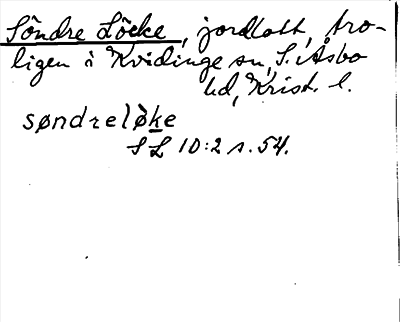 Söndre Löcke, jordlott, tro-
ligen i Kvidinge sn, S. Åsbo
hd, Krist. l.
søndrelòke
SL 10:2 s. 54.